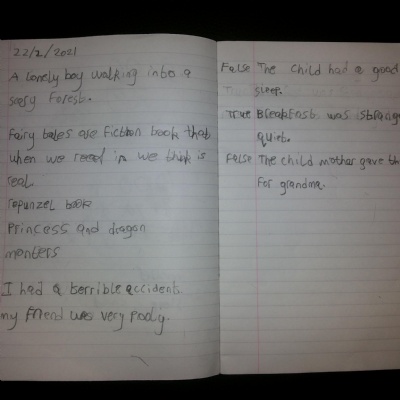 22/2/2021
A lonely boy walking into a
scary forest.
Fairy tales are fiction book that
when we reed in we think is
real.
rapunzel book
Princess and dragon
monters
I had a terrible accidents.
my friend was very pooly.
False The child had a good
sleep.
True Breakfast was strange
quiet.
False The child mother gave th
for grandma.